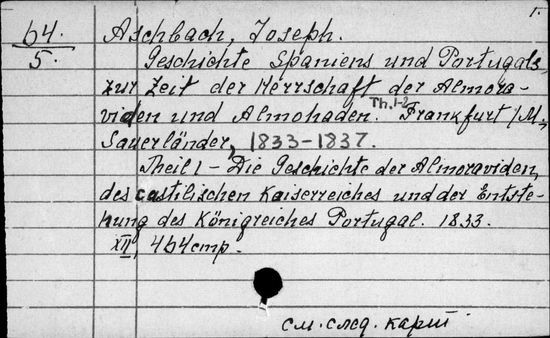 1.
64.
5.
Aschbach, Joseph.
Geschichte Spaniens und Portugals
zur Zeit der Herrschaft der Almora-
viden und Almohaden. Th.1-2 Frankfurt/M.,
Sauerländer, 1833-1837.
Theil 1 - Die Geschichte der Almoraviden,
des castilischen Kaiserreiches und der Entste-
hung des Königreiches Portugal. 1833.
XII, 464 cmp.
см. след. карт